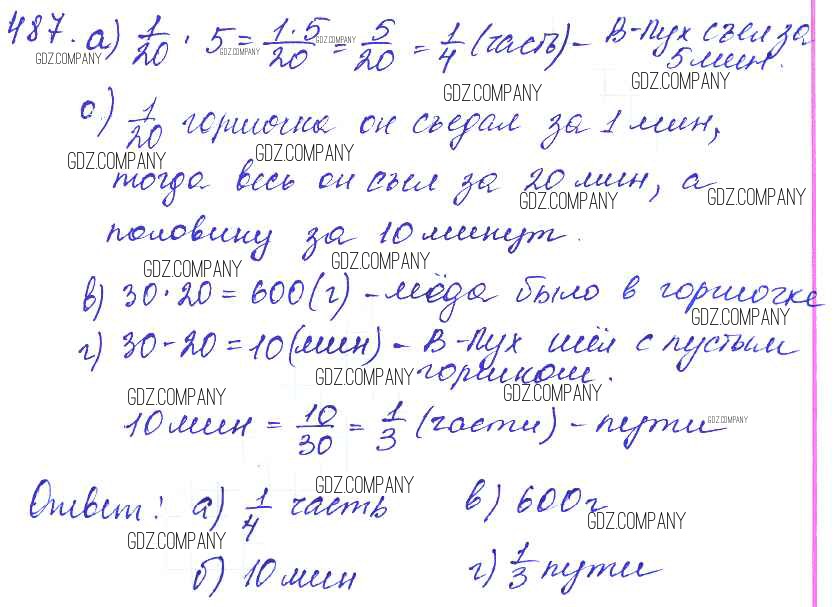 487. а) 1/20 · 5 = 1·5/20 = 5/20 = 1/4 (часть) – В-Пух съел за
5 мин.
GDZ.COMPANY GDZ.COMPANY GDZ.COMPANY
GDZ.COMPANY GDZ.COMPANY
б) 1/20 горшочка он съедал за 1 мин,
GDZ.COMPANY GDZ.COMPANY
тогда весь он съел за 20 мин, а
GDZ.COMPANY GDZ.COMPANY
половину за 10 минут.
GDZ.COMPANY GDZ.COMPANY
в) 30 · 20 = 600 (г) – мёда было в горшочке
GDZ.COMPANY
г) 30 - 20 = 10 (мин) – В-Пух шёл с пустым
GDZ.COMPANY горшком.
GDZ.COMPANY GDZ.COMPANY
10 мин = 10/30 = 1/3 (части) – пути
GDZ.COMPANY
GDZ.COMPANY
Ответ: а) 1/4 часть в) 600 г
GDZ.COMPANY GDZ.COMPANY
б) 10 мин г) 1/3 пути